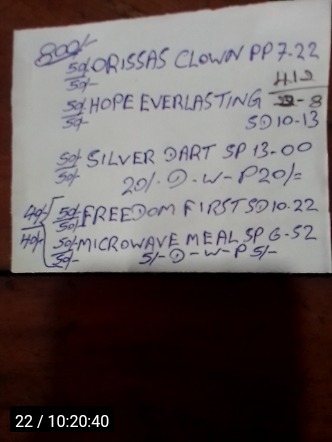 800/-
50/- ORISSAS CLOWN PP 7.22
50/-
50/- HOPE EVERLASTING 4.12
50/- - 8
SD 10-13
50/- SILVER DART SP 13-00
50/-
20/- D-W-P 20/=
40/- 50/- FREEDOM FIRST SD 10.22
40/- 50/-
50/- MICROWAVE MEAL SP 6-52
50/- 5/- D-W-P 5/-
22 / 10:20:40